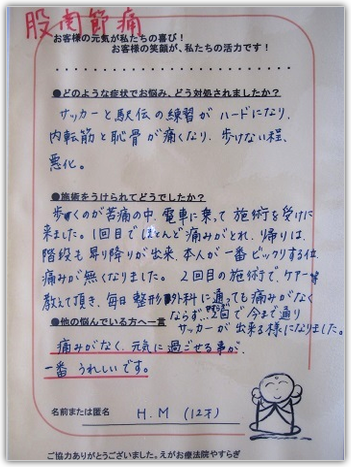 股関節痛
お客様の元気が私たちの喜び!
お客様の笑顔が、私たちの活力です!
●どのような症状でお悩み、どう対処されましたか?
サッカーと駅伝の練習がハードになり、
内転筋と恥骨が痛くなり、歩けない程、
悪化。
●施術をうけられてどうでしたか?
歩くのが苦痛の中、電車に乗って施術を受けに
来ました。1回目でほとんど痛みがとれ、帰りは、
階段も昇り降りが出来、本人が一番ビックリする位、
痛みが無くなりました。2回目の施術で、ケアーを
教えて頂き、毎日整形外科に通っても痛みがなく
ならず…2回で今まで通り
●他の悩んでいる方へ一言
サッカーが出来る様になりました。
痛みがなく、元気に過ごせる事が、
一番うれしいです。
名前または匿名 H.M (12才)
ご協力ありがとうございました。えがお療法院やすらぎ